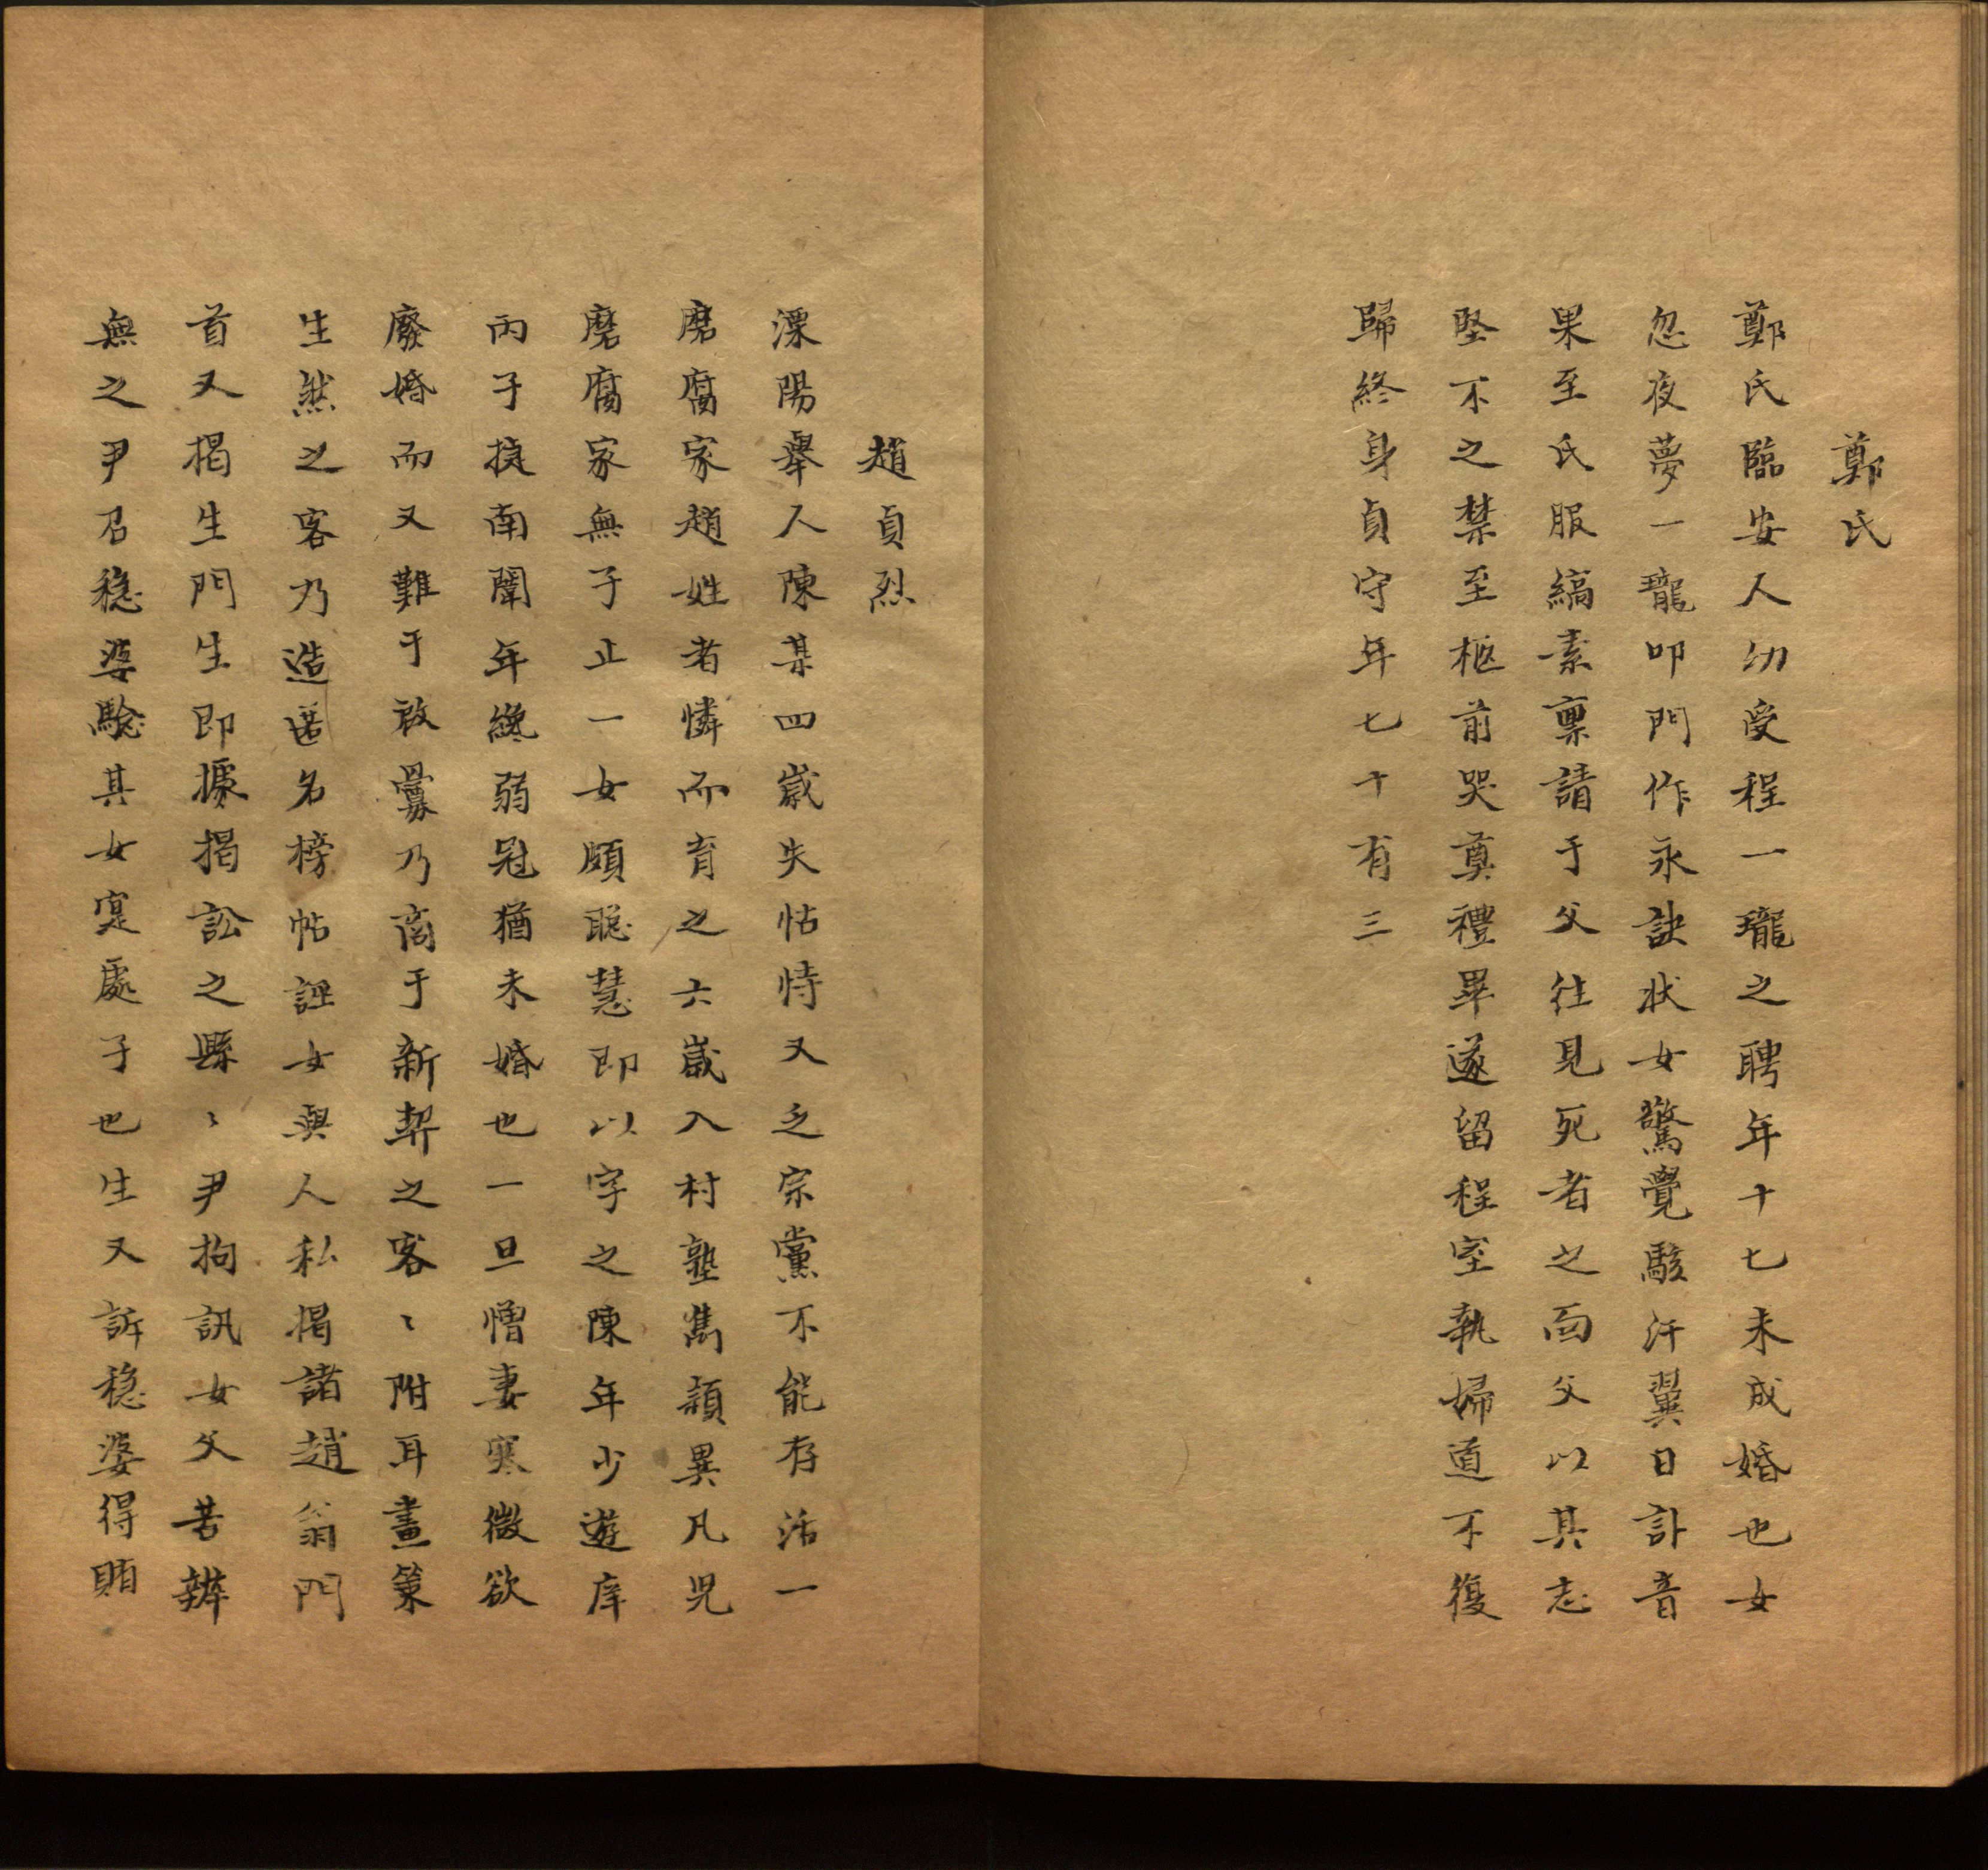 鄭氏
鄭氏臨安人幼受程一瓏之聘年十七未成婚也女
忽夜夢一瓏叩門作永訣狀女驚覺駭汗翼日訃音
果至氏服縞素稟請于父往見死者之面父以其志
堅不之禁至柩前哭奠禮畢遂留程室執婦道不復
歸終身貞守年七十有三
趙貞烈
溧陽舉人陳某四歲失怙恃又乏宗黨不能存活一
磨腐家趙姓者憐而育之六歲入村塾雋穎異凡兒
磨腐家無子止一女頗聰慧即以字之陳年少遊庠
丙子捷南闈年纔弱冠猶未婚也一旦憎妻寒微欲
廢婚而又難于啟釁乃商于新契之客〻附耳畫策
生然之客乃造匿名榜帖誣女與人私揭諸趙翁門
首又揭生門生即據揭訟之縣〻尹拘訊女父苦辨
無之尹召穩婆驗其女寔處子也生又訴穩婆得賄